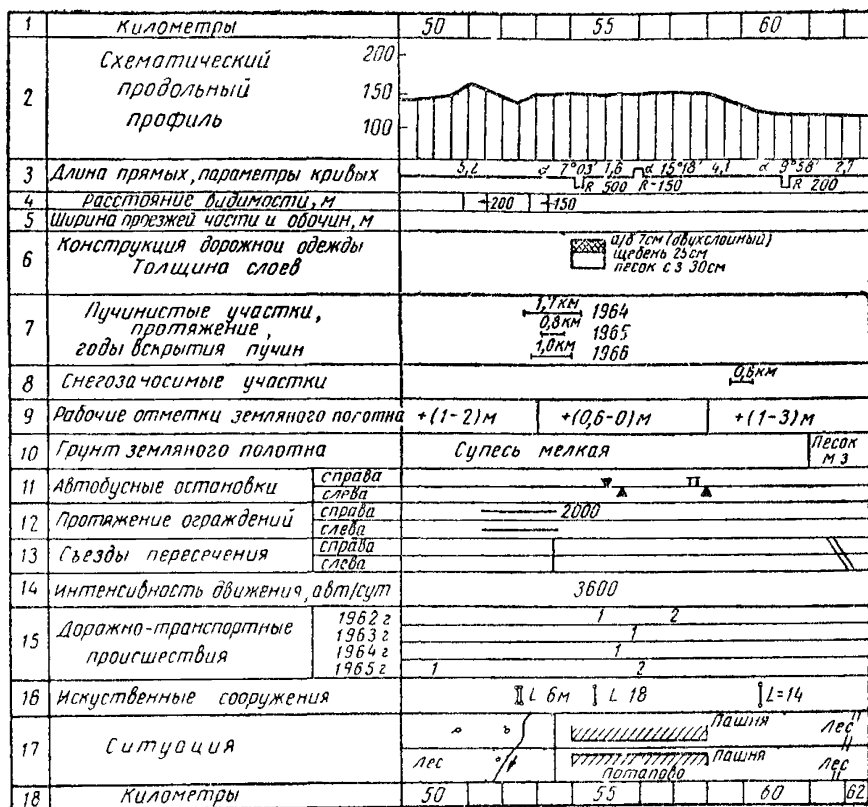 1 Километры 50 55 60
2 Схематический продольный профиль 200 150 100
3 Длина прямых, параметры кривых 5,2 α 7°03' 1,6 α 15°18' 4,1 α 9°58' 2,7
R 500 R-150 R 200
4 Расстояние видимости, м 200 150
5 Ширина проезжей части и обочин, м
6 Конструкция дорожной одежды
Толщина слоев
а/б 7см (двухслойный)
щебень 25см
песок с з 30см
7 Пучинистые участки,
протяжение,
годы вскрытия пучин
1,7км 1964
0,8км 1965
1,0км 1966
8 Снегозаносимые участки 0,6км
9 Рабочие отметки земляного полотна +(1-2)м +(0,6-0)м +(1-3)м
10 Грунт земляного полотна Супесь мелкая Песок м з
11 Автобусные остановки справа
слева
12 Протяжение ограждений справа 2000
слева
13 Съезды пересечения справа
слева
14 Интенсивность движения, авт/сут 3600
15 Дорожно-транспортные
происшествия
1962г 1 2
1963г 1
1964г 1
1965г 1 2
16 Искуственные сооружения L 6м L 18 L=14
17 Ситуация
Пашня Лес
Лес Пашня Лес
Потапово
18 Километры 50 55 60 62